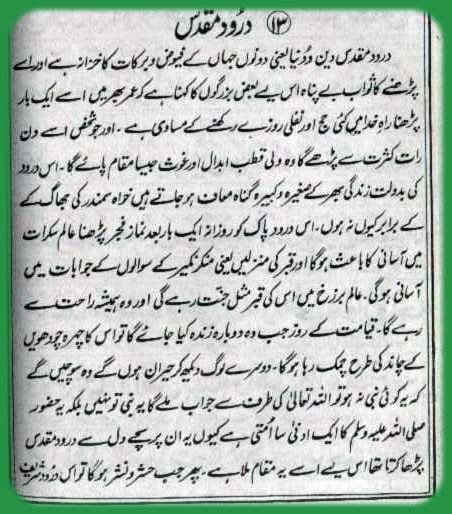 ۱۳ درُود مقدس
درود مقدس دین و دُنیا یعنی دونوں جہاں کے فیوض و برکات کا خزانہ ہے اور اسے
پڑھنے کا ثواب بے پناہ اس یے بعض بزرگوں کا کہنا ہے کہ عمر بھر میں اسے ایک بار
پڑھنا راہِ خدا میں کئی حج اور نفلی روزے رکھنے کے مساوی ہے ۔ اور جو شخص اسے دن
رات کثرت سے پڑھے گا وہ ولی قطب ابدال اور غوث جیسا مقام پائے گا ۔ اس درود
کی بدولت زندگی بھر کے صغیرہ و کبیرہ گناہ معاف ہو جاتے ہیں خواہ سمندر کی جھاگ کے
کے برابر کیوں نہ ہوں ۔ اس درود پاک کو روزانہ ایک بار بعد نماز فجر پڑھنا عالم سکرات
میں آسانی کا باعث ہوگا اور قبر کی منزلیں یعنی منکر نکیر کے سوالوں کے جوابات میں
آسانی ہوگی ۔ عالم برزخ میں اس کی قبر مثل جنّت رہے گی اور وہ ہمیشہ راحت سے
رہے گا ۔ قیامت کے روز جب وہ دوبارہ زندہ کیا جائے گا تو اس کا چہرہ چودھویں
کے چاند کی طرح چمک رہا ہوگا ۔ دوسرے لوگ دیکھ کر حیران ہوں گے وہ سوچیں گے
کہ یہ کوئی نبی نہ ہو تو اللہ تعالیٰ کی طرف سے جواب ملے گا یہ نبی تو نہیں بلکہ یہ حضور
صلی اللہ علیہ وسلم کا ایک ادنیٰ سا اُمتی ہے کیوں یہ ان پر سچے دل سے درود مقدس
پڑھا کرتا تھا اس یے اسے یہ مقام ملا ہے ۔ پھر جب حشر و نشر ہوگا تو اس درُود شریف